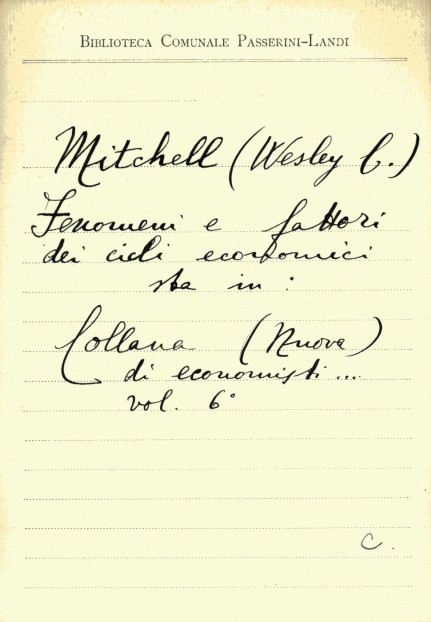 BIBLIOTECA COMUNALE PASSERINI-LANDI
Mitchell (Wesley C.)
Fenomeni e fattori
dei cicli economici
sta in :
Collana (Nuova)
di economisti ...
vol. 6°
C.